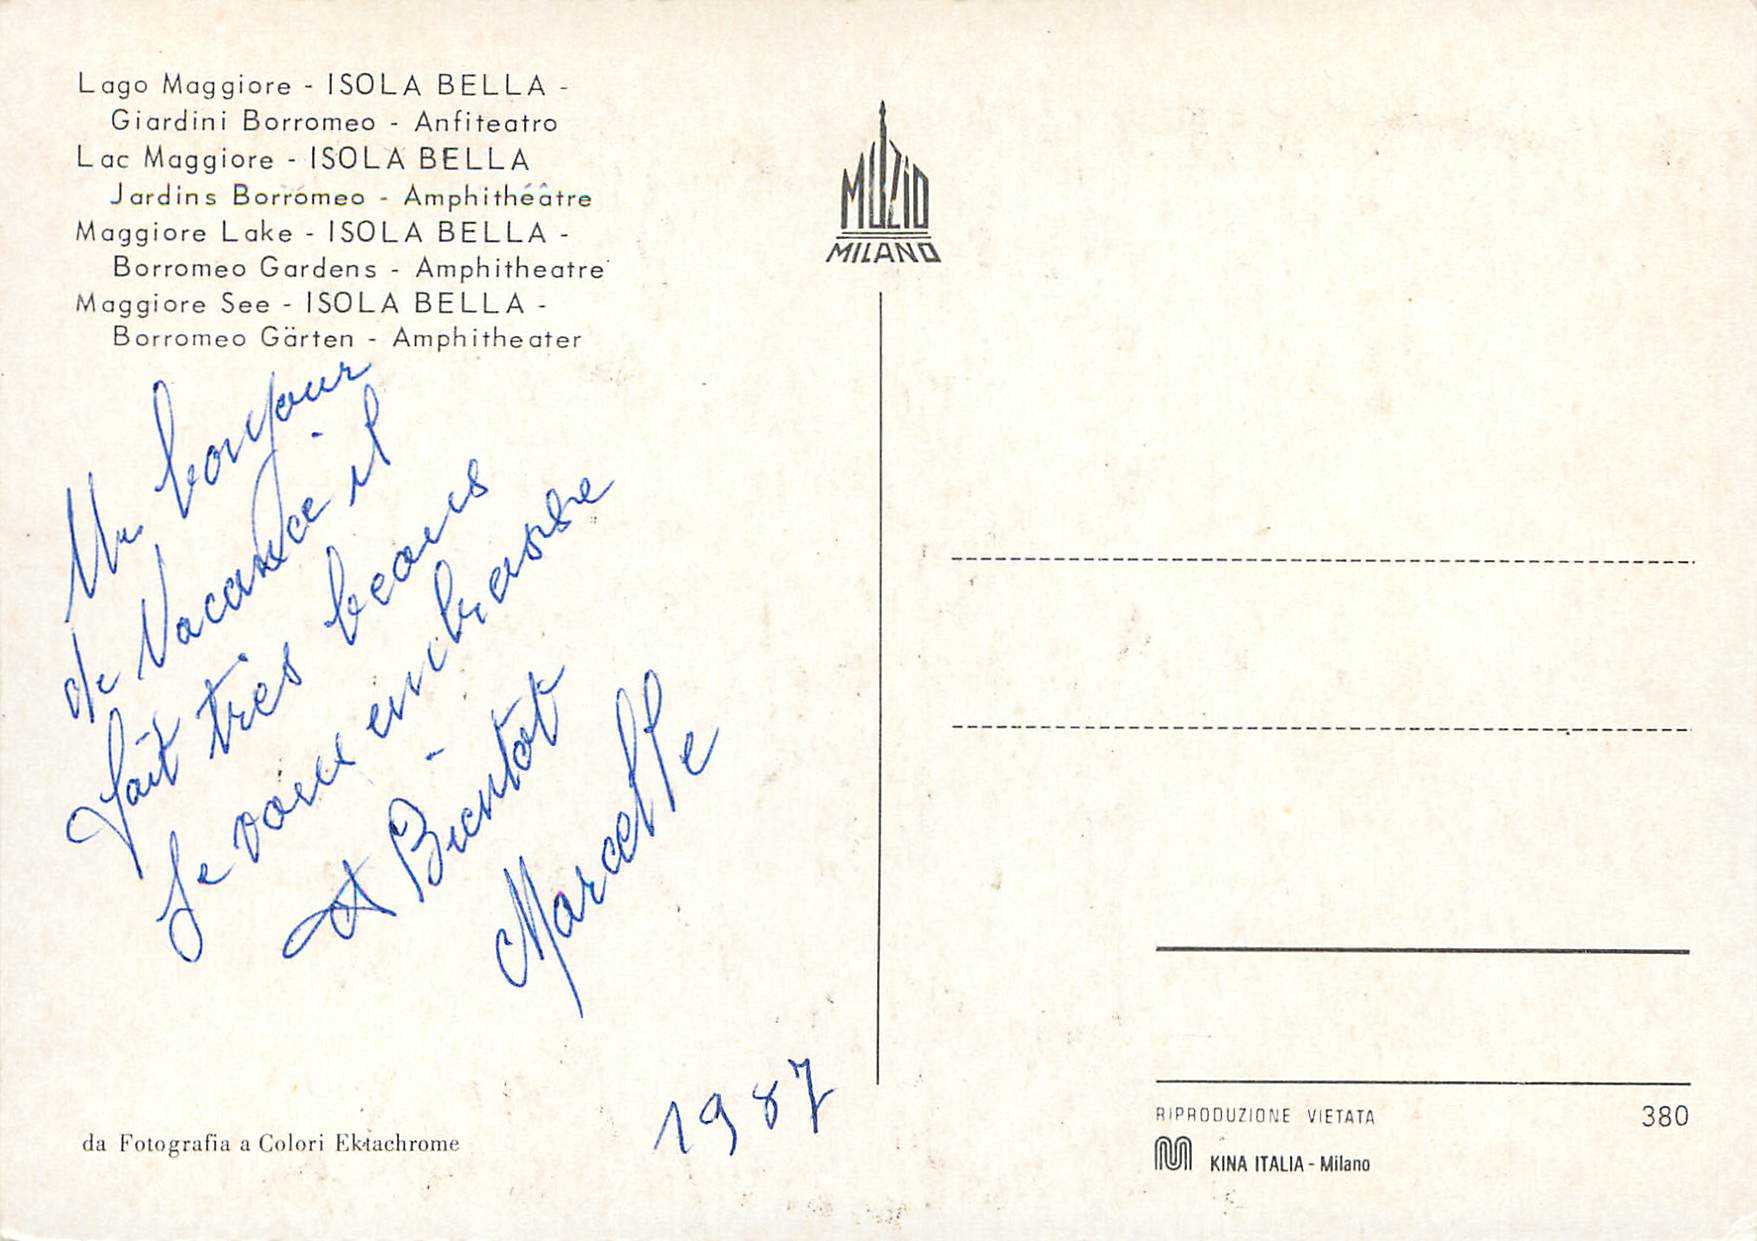 Lago Maggiore - ISOLA BELLA -
Giardini Borromeo - Anfiteatro
Lac Maggiore - ISOLA BELLA
Jardins Borromeo - Amphithéâtre
Maggiore Lake - ISOLA BELLA -
Borromeo Gardens - Amphitheatre
Maggiore See - ISOLA BELLA -
Borromeo Gärten - Amphitheater
Un bonjour
de Vacance il
fait très beaus
Je vous embrasse
A Bientot
Marcelle
1987
da Fotografia a Colori Ektachrome
MUZIO
MILANO
RIPRODUZIONE VIETATA
380
KINA ITALIA - Milano